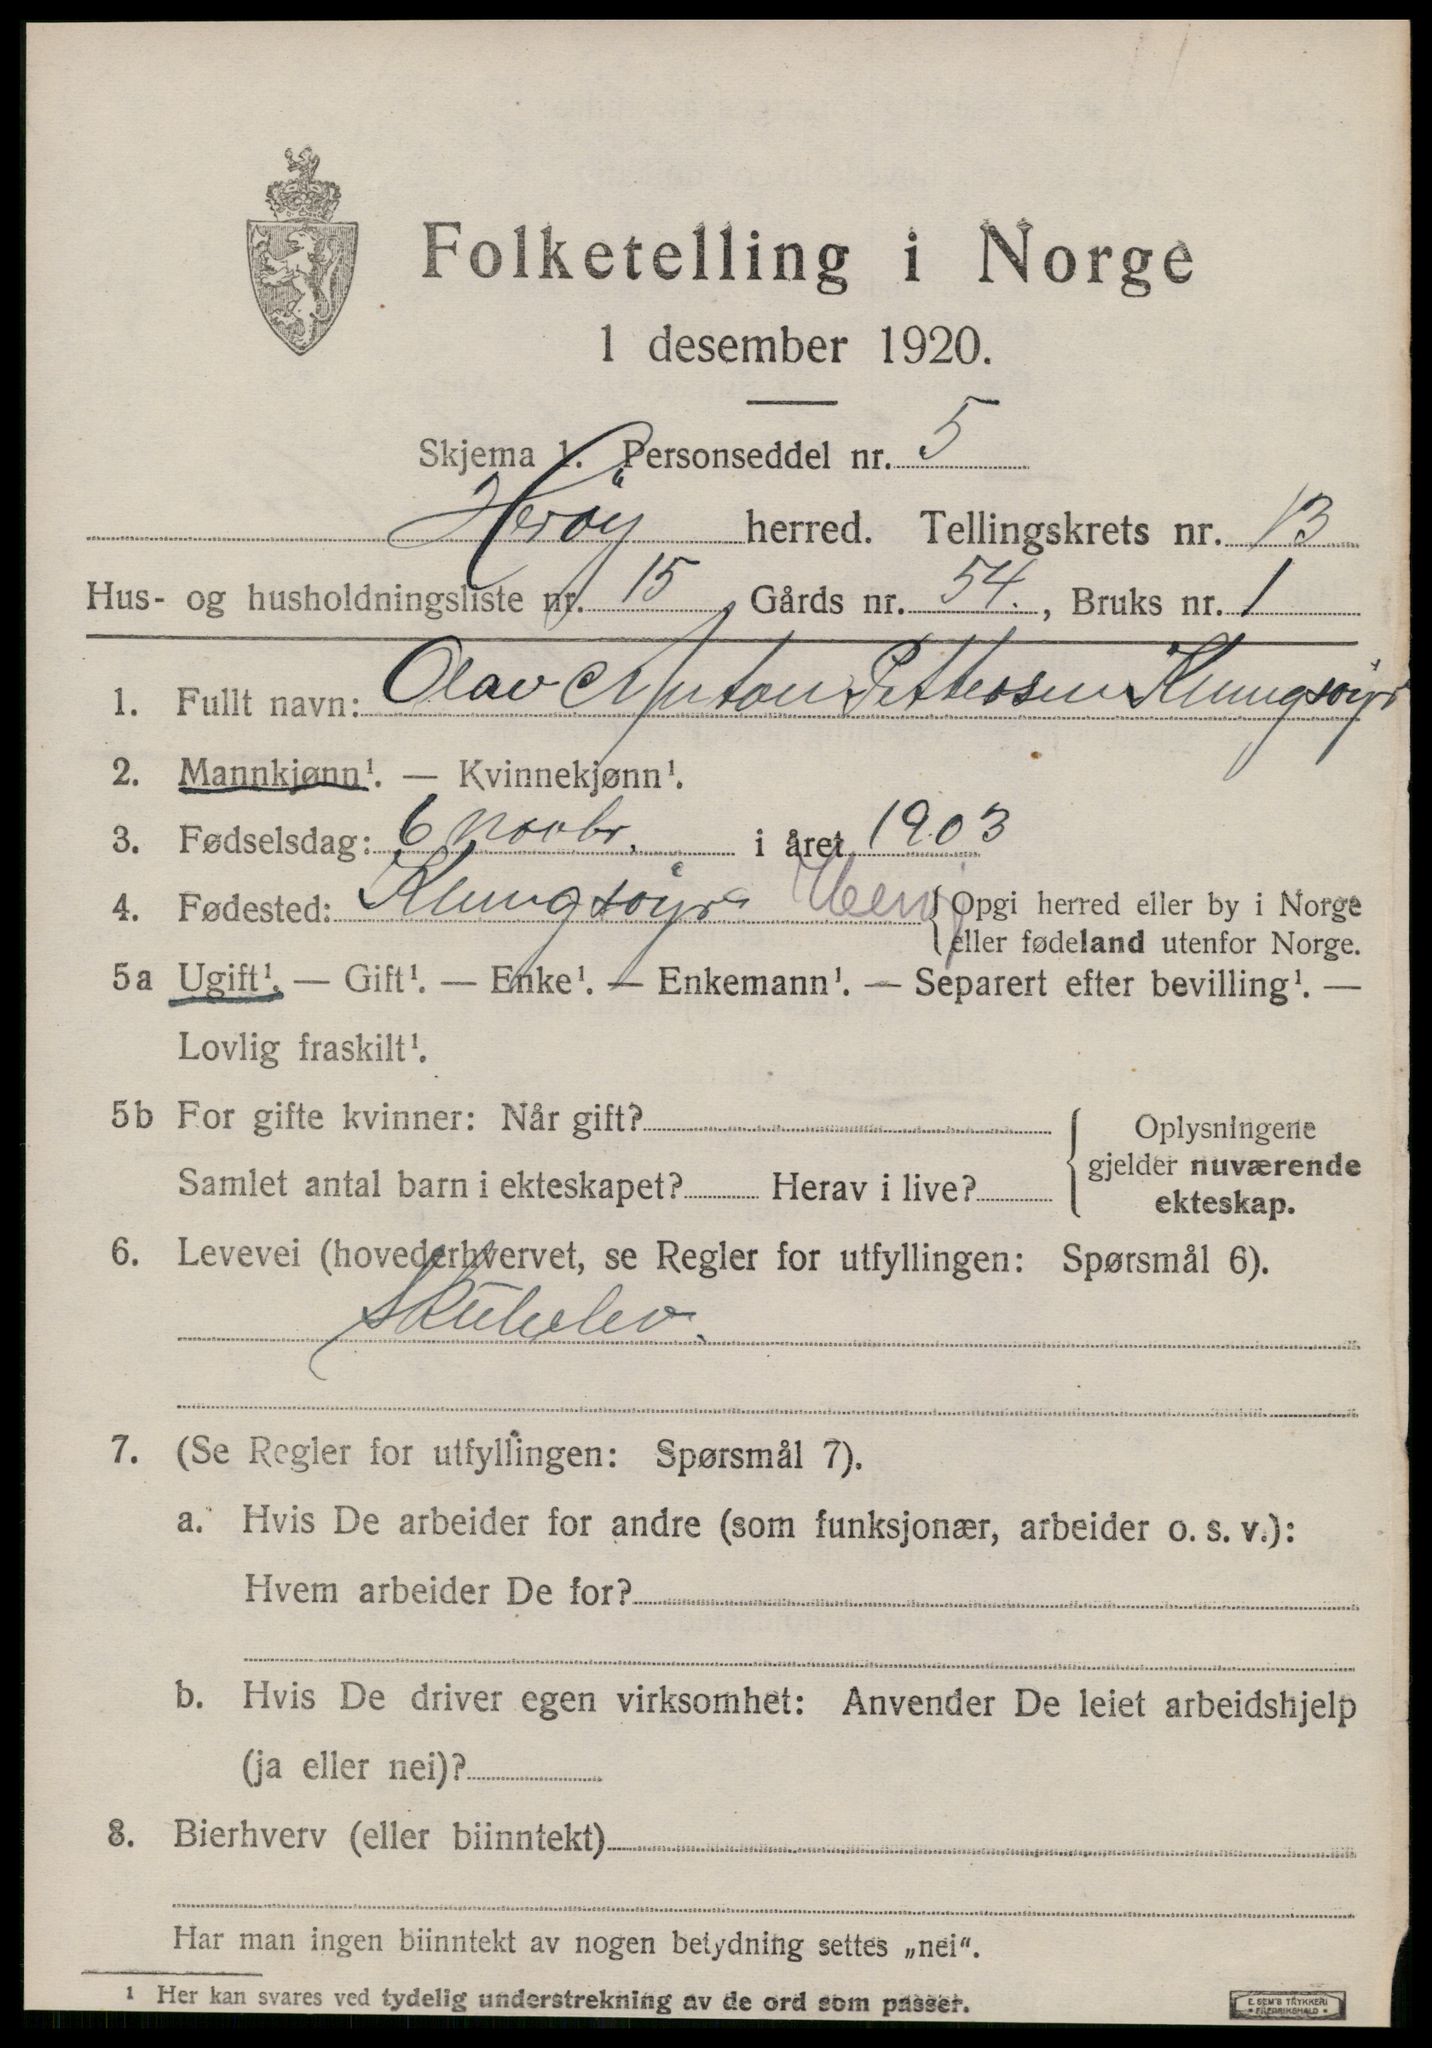 Folketelling i Norge
1 desember 1920.
Skjema 1. Personseddel nr. 5
Herøy herred. Tellingskrets nr. 13
Hus- og husholdningsliste nr. 15 Gårds nr. 54., Bruks nr. 1
1. Fullt navn: Olav Anton Pettersen Klungsøyr
2. Mannkjønn¹. — Kvinnekjønn¹.
3. Fødselsdag: 6 novbr. i året 1903
4. Fødested: Klungsøyr Herøy {Opgi herred eller by i Norge
eller fødeland utenfor Norge.
5a Ugift¹. — Gift¹. — Enke¹. — Enkemann¹. — Separert efter bevilling¹. —
Lovlig fraskilt¹.
5b For gifte kvinner: Når gift?
Samlet antal barn i ekteskapet? Herav i live?
Oplysningene
gjelder nuværende
ekteskap.
6. Levevei (hovederhvervet, se Regler for utfyllingen: Spørsmål 6).
Skuleelev.
7. (Se Regler for utfyllingen: Spørsmål 7).
a. Hvis De arbeider for andre (som funksjonær, arbeider o. s. v.):
Hvem arbeider De for?
b. Hvis De driver egen virksomhet: Anvender De leiet arbeidshjelp
(ja eller nei)?
8. Bierhverv (eller biinntekt)
Har man ingen biinntekt av nogen betydning settes „nei“.
¹ Her kan svares ved tydelig understrekning av de ord som passer.
E. SEM'S TRYKKERI
• FREDRIKSHALD •